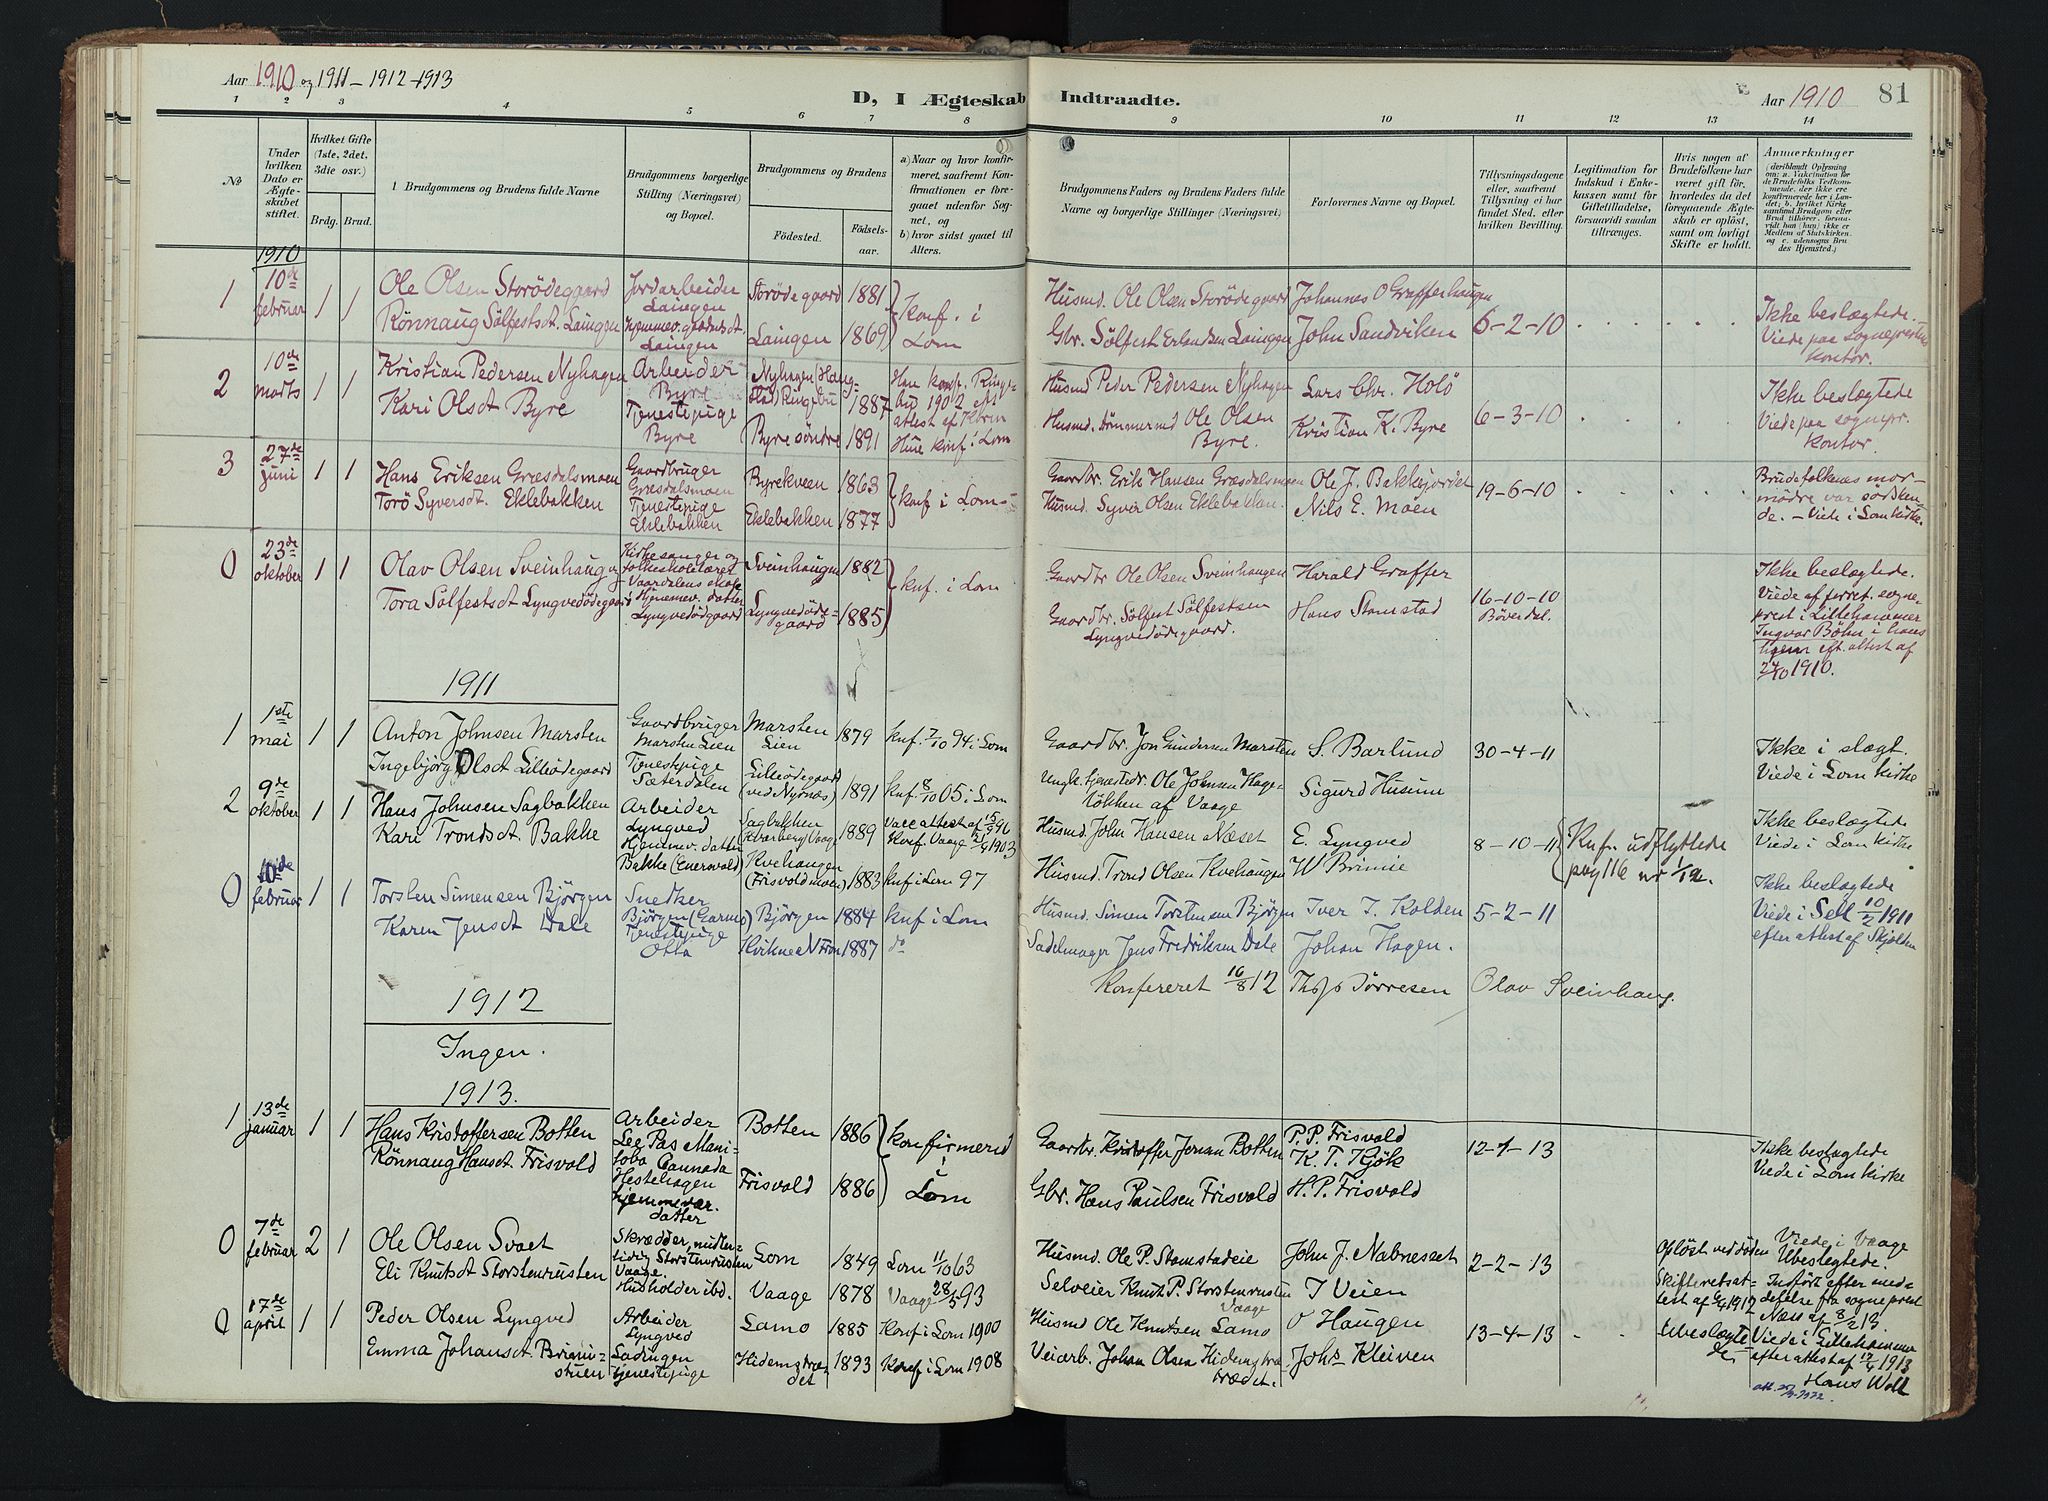 Aar 1910 og 1911 - 1912 - 1913
D, I Ægteskab Indtraadte.
Aar 1910
81
1 2 3 4 5 6 7 8 9 10 11 12 13 14
No
Under hvilken Dato er Ægteskabet stiftet.
Hvilket Gifte (1ste, 2det, 3die osv.)
Brdg. Brud.
Brudgommens og Brudens fulde Navne
Brudgommens borgerlige Stilling (Næringsvei) og Bopæl.
Brudgommens og Brudens
Fødested.
Fødselsaar.
a) Naar og hvor konfirmeret, saafremt Konfirmationen er foregaaet udenfor Sognet, og
b) hvor sidst gaaet til Alters.
Brudgommens Faders og Brudens Faders fulde Navne og borgerlige Stillinger (Næringsvei)
Forlovernes Navne og Bopæl.
Tillysningsdagene eller, saafremt Tillysning ei har fundet Sted, efter hvilken Bevilling.
Legitimation for Indskud i Enkekassen samt for Giftetilladelse, forsaavidt saadan tiltrænges.
Hvis nogen af Brudefolkene har været gift før, hvorledes da det foregaaende Ægteskab er opløst, samt om lovligt Skifte er holdt.
Anmærkninger
(deriblandt Oplysning om: a. Vakcination for de Brudefolks Vedkommende, der ikke ere konfirmerede her i Landet; b. hvilket Kirkesamfund Brudgom eller Brud tilhører, forsaavidt han (hun) ikke er Medlem af Statskirken og c. udensogns Brudes Hjemsted.)
1910
1 10de februar 1 1
Ole Olsen Storödegaard
Jordarbeider Laingen
Storödegaard 1881
Konf. i Lom
Husmd. Ole Olsen Storödegaard
Johannes O Graffenhaugen
Rönnaug Sölfestsdt. Laingen
Hjemmev. gaardsdt. Laingen
Laingen 1869
Gbr. Sölfest Erlandsen Laingen
John Sandviken
6-2-10
Ikke beslægtede.
Viede paa sogneprestens kontor.
2 10de marts 1 1
Kristian Pedersen Nyhagen
Arbeider Byre
Nyhagen (Haugstad) Ringebu 1887
Han konf. Ringebu 1902 eft. attest af
Husmd Peder Pedersen Nyhagen
Lars Chr. Holö
Kari Olsdt Byre
Tjenestepige Byre
Byre söndre 1891
Hun konf. i Lom
Husmd. tömmermd Ole Olsen Byre.
Kristian K. Byre
6-3-10
Ikke beslægtede
Viede paa sognepr. kontor.
3 27de juni 1 1
Hans Eriksen Græsdalsmoen
Gaardbruger Græsdalsmoen
Byrekveen 1863
konf i Lom
Gaardbr. Erik Hansen Græsdalsmoen
Ole J. Bakkejordet
Torö Syversdt. Eklebakken
Tjenestepige Eklebakken
Eklebakken 1877
Husmd. Syver Olsen Eklebakken
Nils E. Moen
19-6-10
Brudefolkenes mormödre var södskende. - Viede i Lom kirke.
0 23de oktober 1 1
Olav Olsen Sveinhaug
Kirkesanger og folkeskolelærer Vaardalens
Sveinhaugen 1882
knf. i Lom
Gaardbr Ole Olsen Sveinhaugen
Harald Graffer
Tora Sölfestsdt Lyngvedödegaard
Hjemmev. datter Lyngvedödegaard
Lyngvedödegaard 1885
Gaardbr. Sölfest Sölfestsen Lyngvedödegaard.
Hans Stamstad
16-10-10 Böverdal.
Ikke beslægtede.
Viede af forret. sogneprest i Lillehammer
Ingvar Böhn i hans hjem eft. attest af
24/10 1910.
1911
1 1ste mai 1 1
Anton Johnsen Marsten
Gaardbruger Marsten Lien
Marsten Lien 1879
knf. 7/10 94 i Lom
Gaardbr. Jon Gundersen Marsten
S. Barlund
30-4-11
Ikke i slægt.
Viede i Lom kirke
Ingebjörg Olsdt Lilleödegaard
Tjenestepige Sæterdalen
Lilleödegaard (ved Nyrnæs) 1891
knf. 8/10 05 i Lom
Ungk. tjenestedr. Ole Johnsen Hagelökken af Vaage
Sigurd Husum
2 9de oktober 1 1
Hans Johnsen Sagbakken
Arbeider Lyngved
Sagbakken Kvarberg Vaage 1889
Vacc attest af 15/9 96
Konf. Vaage 1903
Husmd. John Hansen Næset
E. Lyngved
8-10-11
Knf. udflyttede pag 116 nr 1/12.
Ikke beslægtede
Viede i Lom kirke
Kari Trondsdt. Bakke
Hjemmev. datter Bakke
Kvehaugen (Frisvoldmoen) 1883
knf i Lom 97
Husmd. Trond Olsen Kvehaugen
W Brimie
0 10de februar 1 1
Torsten Simensen Björgen
Snedker Björgen (Garmo)
Björgen 1884
knf i Lom
Husmd. Simen Torstensen Björgen
Iver I. Kolden
5-2-11
Ikke beslægtede
Viede i Sell 10/2 1911
efter attest af Skjölden
Karen Jensdt Dale
Tjenestepige Otta
Kvikne N Fron 1887
do
Sadelmager Jens Fredriksen Dale
Johan Hagen.
Konfereret 16/8 12 Ths Törresen Olav Sveinhaug.
1912
Ingen.
1913.
1 13de januar 1 1
Hans Kristoffersen Botten
Arbeider Lee Pas Manitoba Cannada
Botten 1886
konfirmered i Lom
Gaardbr. Kristoffer Jensen Botten
P. P. Frisvold
K. T. Kjök
12-1-13
Ikke beslægtede
Viede i Lom kirke
Rönnaug Hansdt. Frisvold
Hestehagen hjemmevær. datter
Frisvold 1886
Gbr. Hans Paulsen Frisvold
H. P. Frisvold
0 7de februar 2 1
Ole Olsen Svaet
Skrædder, midlertidig Storstenrusten Vaage.
Lom 1849
Lom 11/10 63
Husmd. Ole P. Stamstadeie
John J. Nabneset
2-2-13
Oplöst ved döden
Skifteretsattest af 1912
Viede i Vaage
Ubeslegtede.
Indfört efter meddelelse fra sogneprest Næss af 8/2 13.
Eli Knutsdt Storstenrusten
Husholder ibd.
Vaage 1878
Vaage 28/5 93
Selveier Knut P. Storstenrusten Vaage
I Veien
0 17de april 1 1
Peder Olsen Lyngved
Arbeider Lyngved
Lamo 1885
Konf i Lom 1900
Husmd Ole Knutsen Lamo
O Haugen
13-4-13
Ubeslægtede
Viede i Lillehammer
efter attest af 17/4 1913
Hans Woll
Emma Johansdt. Brimistuen
Ladingen tjenestepige
Hidemstrædet 1893
Konf i Lom 1908
Veiarb. Johan Olsen Hidemstrædet.
Johs Kleiven